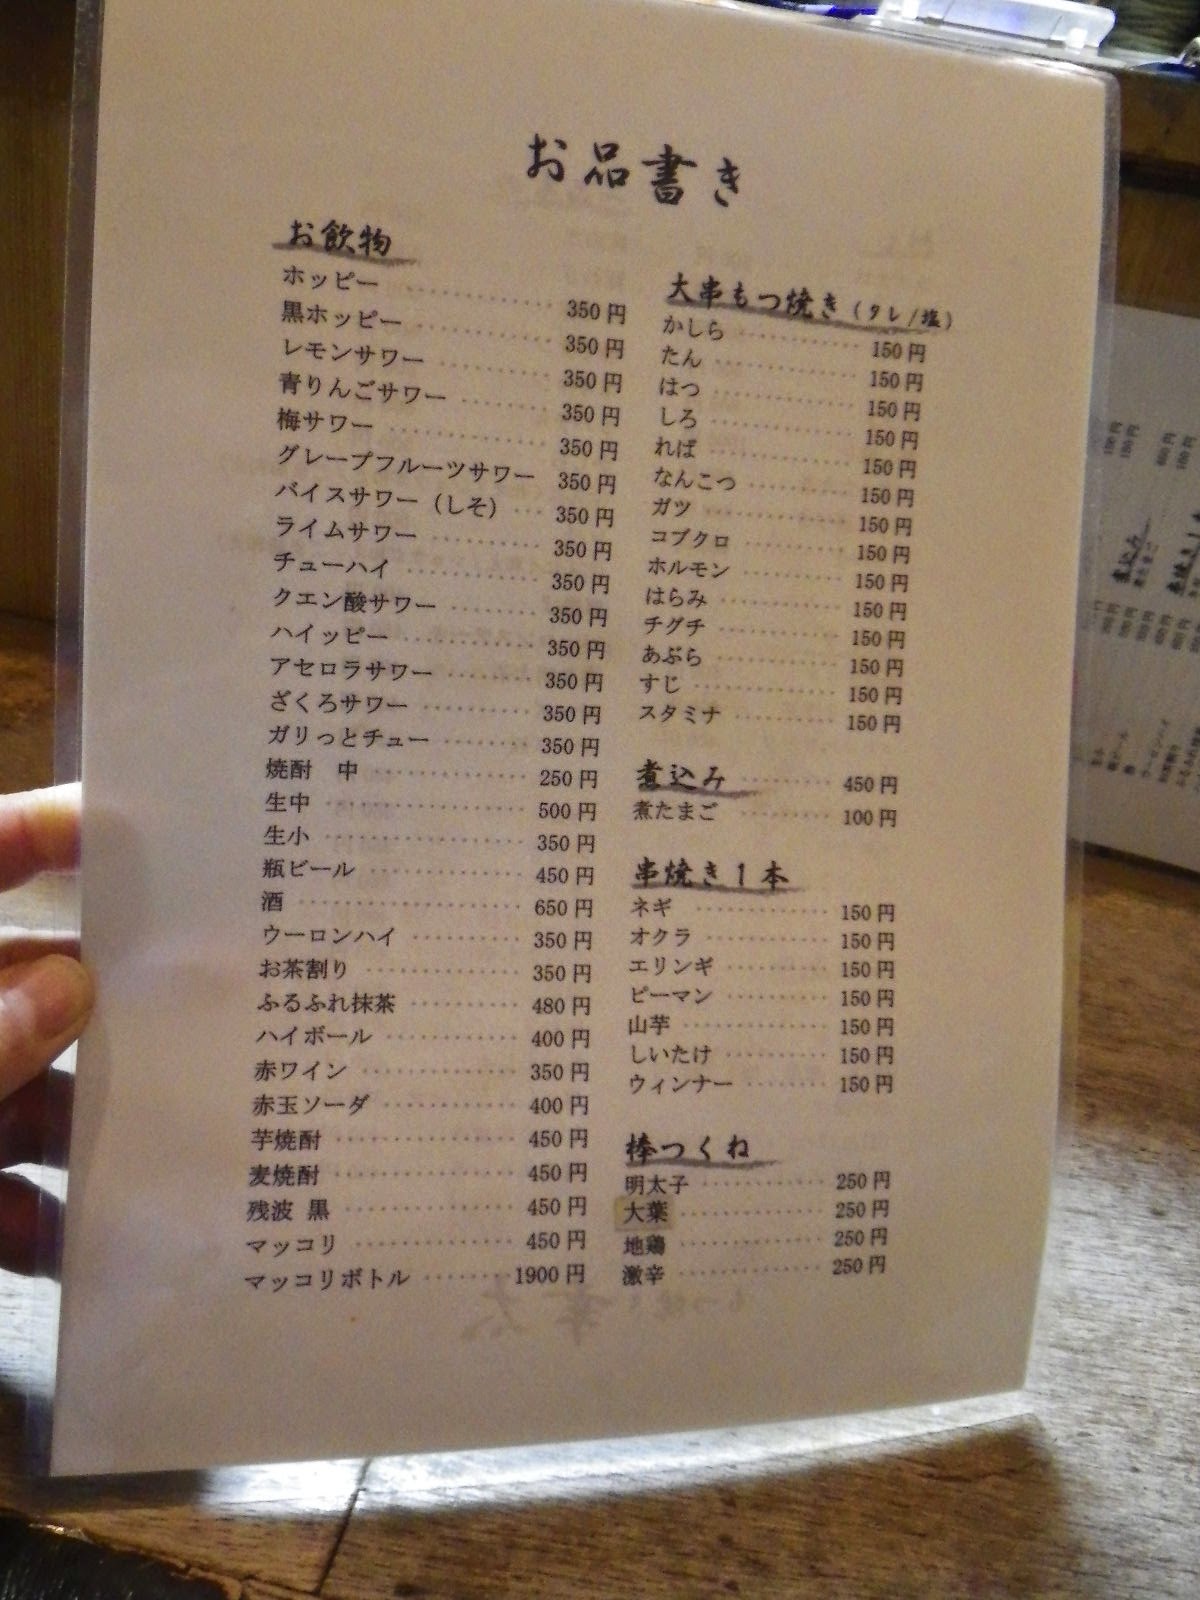 お品書き
お飲物
ホッピー 350円
黒ホッピー 350円
レモンサワー 350円
青りんごサワー 350円
梅サワー 350円
グレープフルーツサワー 350円
バイスサワー（しそ） 350円
ライムサワー 350円
チューハイ 350円
クエン酸サワー 350円
ハイッピー 350円
アセロラサワー 350円
ざくろサワー 350円
ガリっとチュー 350円
焼酎 中 250円
生中 500円
生小 350円
瓶ビール 450円
酒 650円
ウーロンハイ 350円
お茶割り 350円
ふるふれ抹茶 480円
ハイボール 400円
赤ワイン 350円
赤玉ソーダ 400円
芋焼酎 450円
麦焼酎 450円
残波 黒 450円
マッコリ 450円
マッコリボトル 1900円
大串もつ焼き（タレ/塩）
かしら 150円
たん 150円
はつ 150円
しろ 150円
れば 150円
なんこつ 150円
ガツ 150円
コブクロ 150円
ホルモン 150円
はらみ 150円
チグチ 150円
あぶら 150円
すじ 150円
スタミナ 150円
煮込み 450円
煮たまご 100円
串焼き1本
ネギ 150円
オクラ 150円
エリンギ 150円
ピーマン 150円
山芋 150円
しいたけ 150円
ウィンナー 150円
棒つくね
明太子 250円
大葉 250円
地鶏 250円
激辛 250円